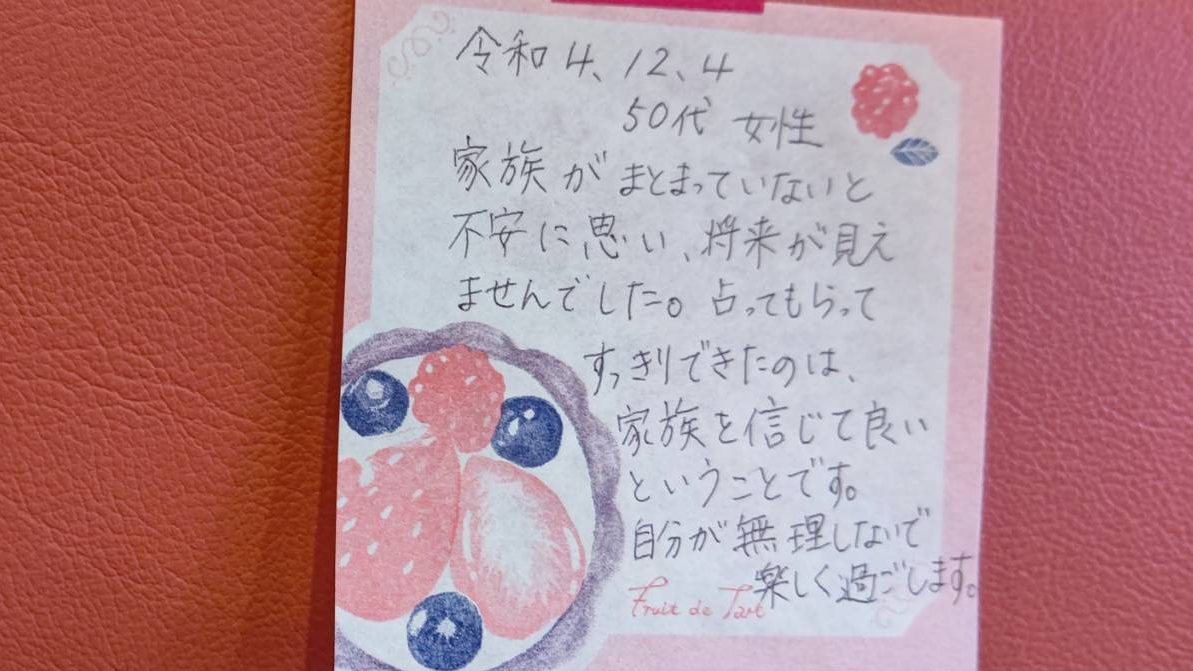 令和4、12、4
50代 女性
家族がまとまっていないと
不安に思い、将来が見え
ませんでした。占ってもらって
すっきりできたのは、
家族を信じて良い
ということです。
自分が無理しないで
楽しく過ごします。
Fruit de Tart